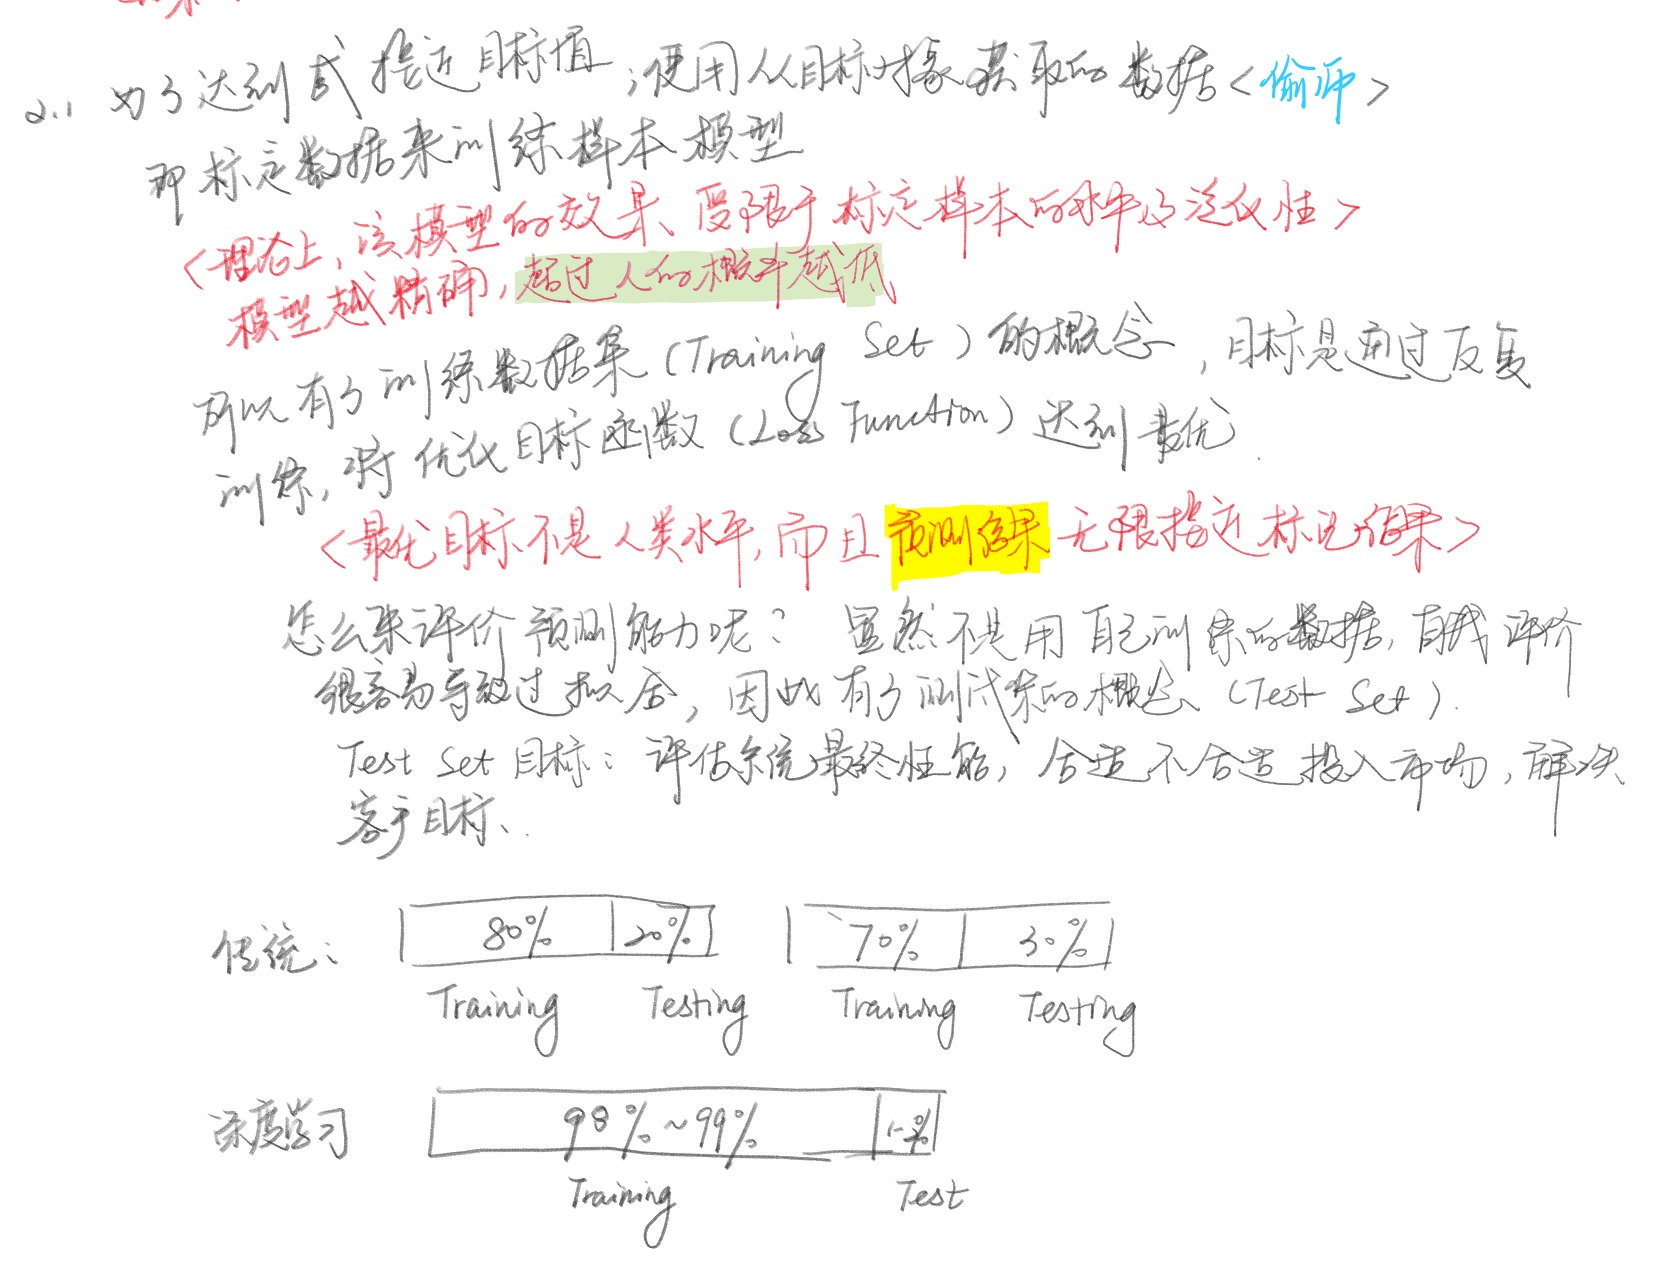 2.1 为了达到或接近目标值，使用从目标对象获取的数据<偷师>
即标定数据来训练样本模型
<理论上，该模型的效果、受限于标定样本的水平及泛化性>
模型越精确，超过人的概率越低
所以有了训练数据集(Training Set)的概念，目标是通过反复
训练，将优化目标函数(Loss Function)达到最优.
<最优目标不是人类水平，而且预测结果无限接近标记结果>
怎么来评价预测能力呢？ 显然不是用自己训练的数据，自我评价
很容易导致过拟合，因此有了测试集的概念(Test Set).
Test Set 目标：评估系统最终性能，合适不合适投入市场，解决
客户目标、.
传统： 80% 20% 70% 30%
Training Testing Training Testing
深度学习 98%~99% 1-2%
Training Test